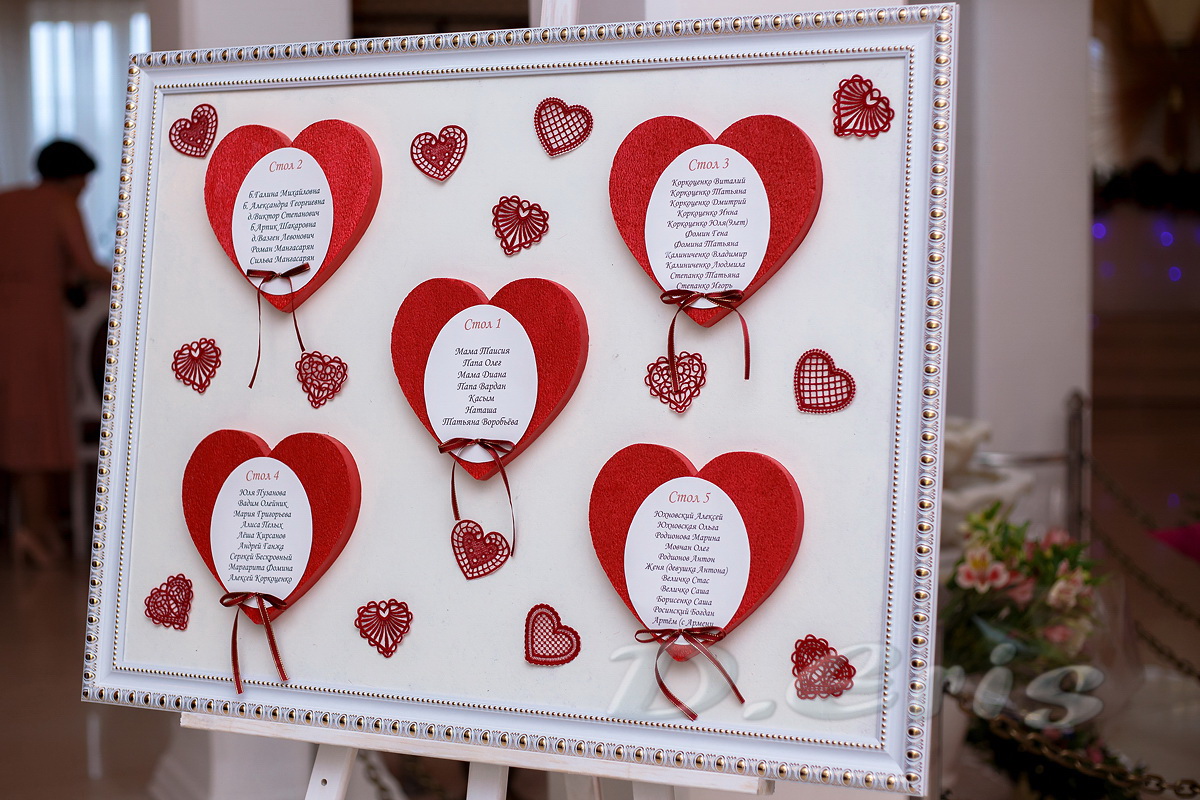 Стол 2
б.Галина Михайловна
б. Александра Георгиевна
д.Виктор Степанович
б.Арпик Шакаровна
д.Вазген Левонович
Роман Мангасарян
Сильва Мангасарян
Стол 3
Коркоценко Виталий
Коркоценко Татьяна
Коркоценко Дмитрий
Коркоценко Инна
Коркоценко Юля(9лет)
Фомин Гена
Фомина Татьяна
Калиниченко Владимир
Калиниченко Людмила
Степанко Татьяна
Степанко Игорь
Стол 1
Мама Таисия
Папа Олег
Мама Диана
Папа Вардан
Касым
Наташа
Татьяна Воробьёва
Стол 4
Юля Пузанова
Вадим Олейник
Мария Григорьева
Алиса Пелых
Лёша Кирсанов
Андрей Ганжа
Сергей Бескровный
Маргарита Фомина
Алексей Коркоценко
Стол 5
Юхновский Алексей
Юхновская Ольга
Родионова Марина
Мовчан Олег
Родионов Антон
Женя (девушка Антона)
Величко Стас
Величко Саша
Борисенко Саша
Росинский Богдан
Артём (с Армени
D.eris